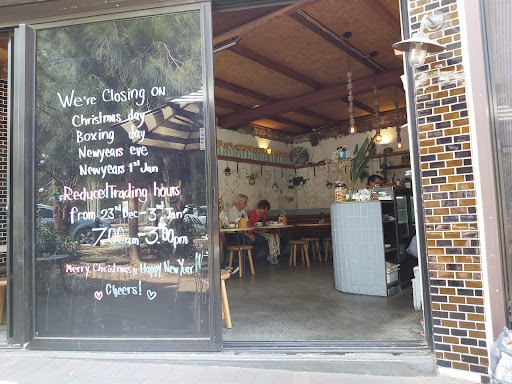 We're Closing on
Christmas day
Boxing day
Newyears eve
Newyears 1st Jan
Reduced Trading hours
from 23rd Dec - 3rd Jan
7.00am - 3.00pm
Merry Christmas & Happy New Year!!
Cheers!